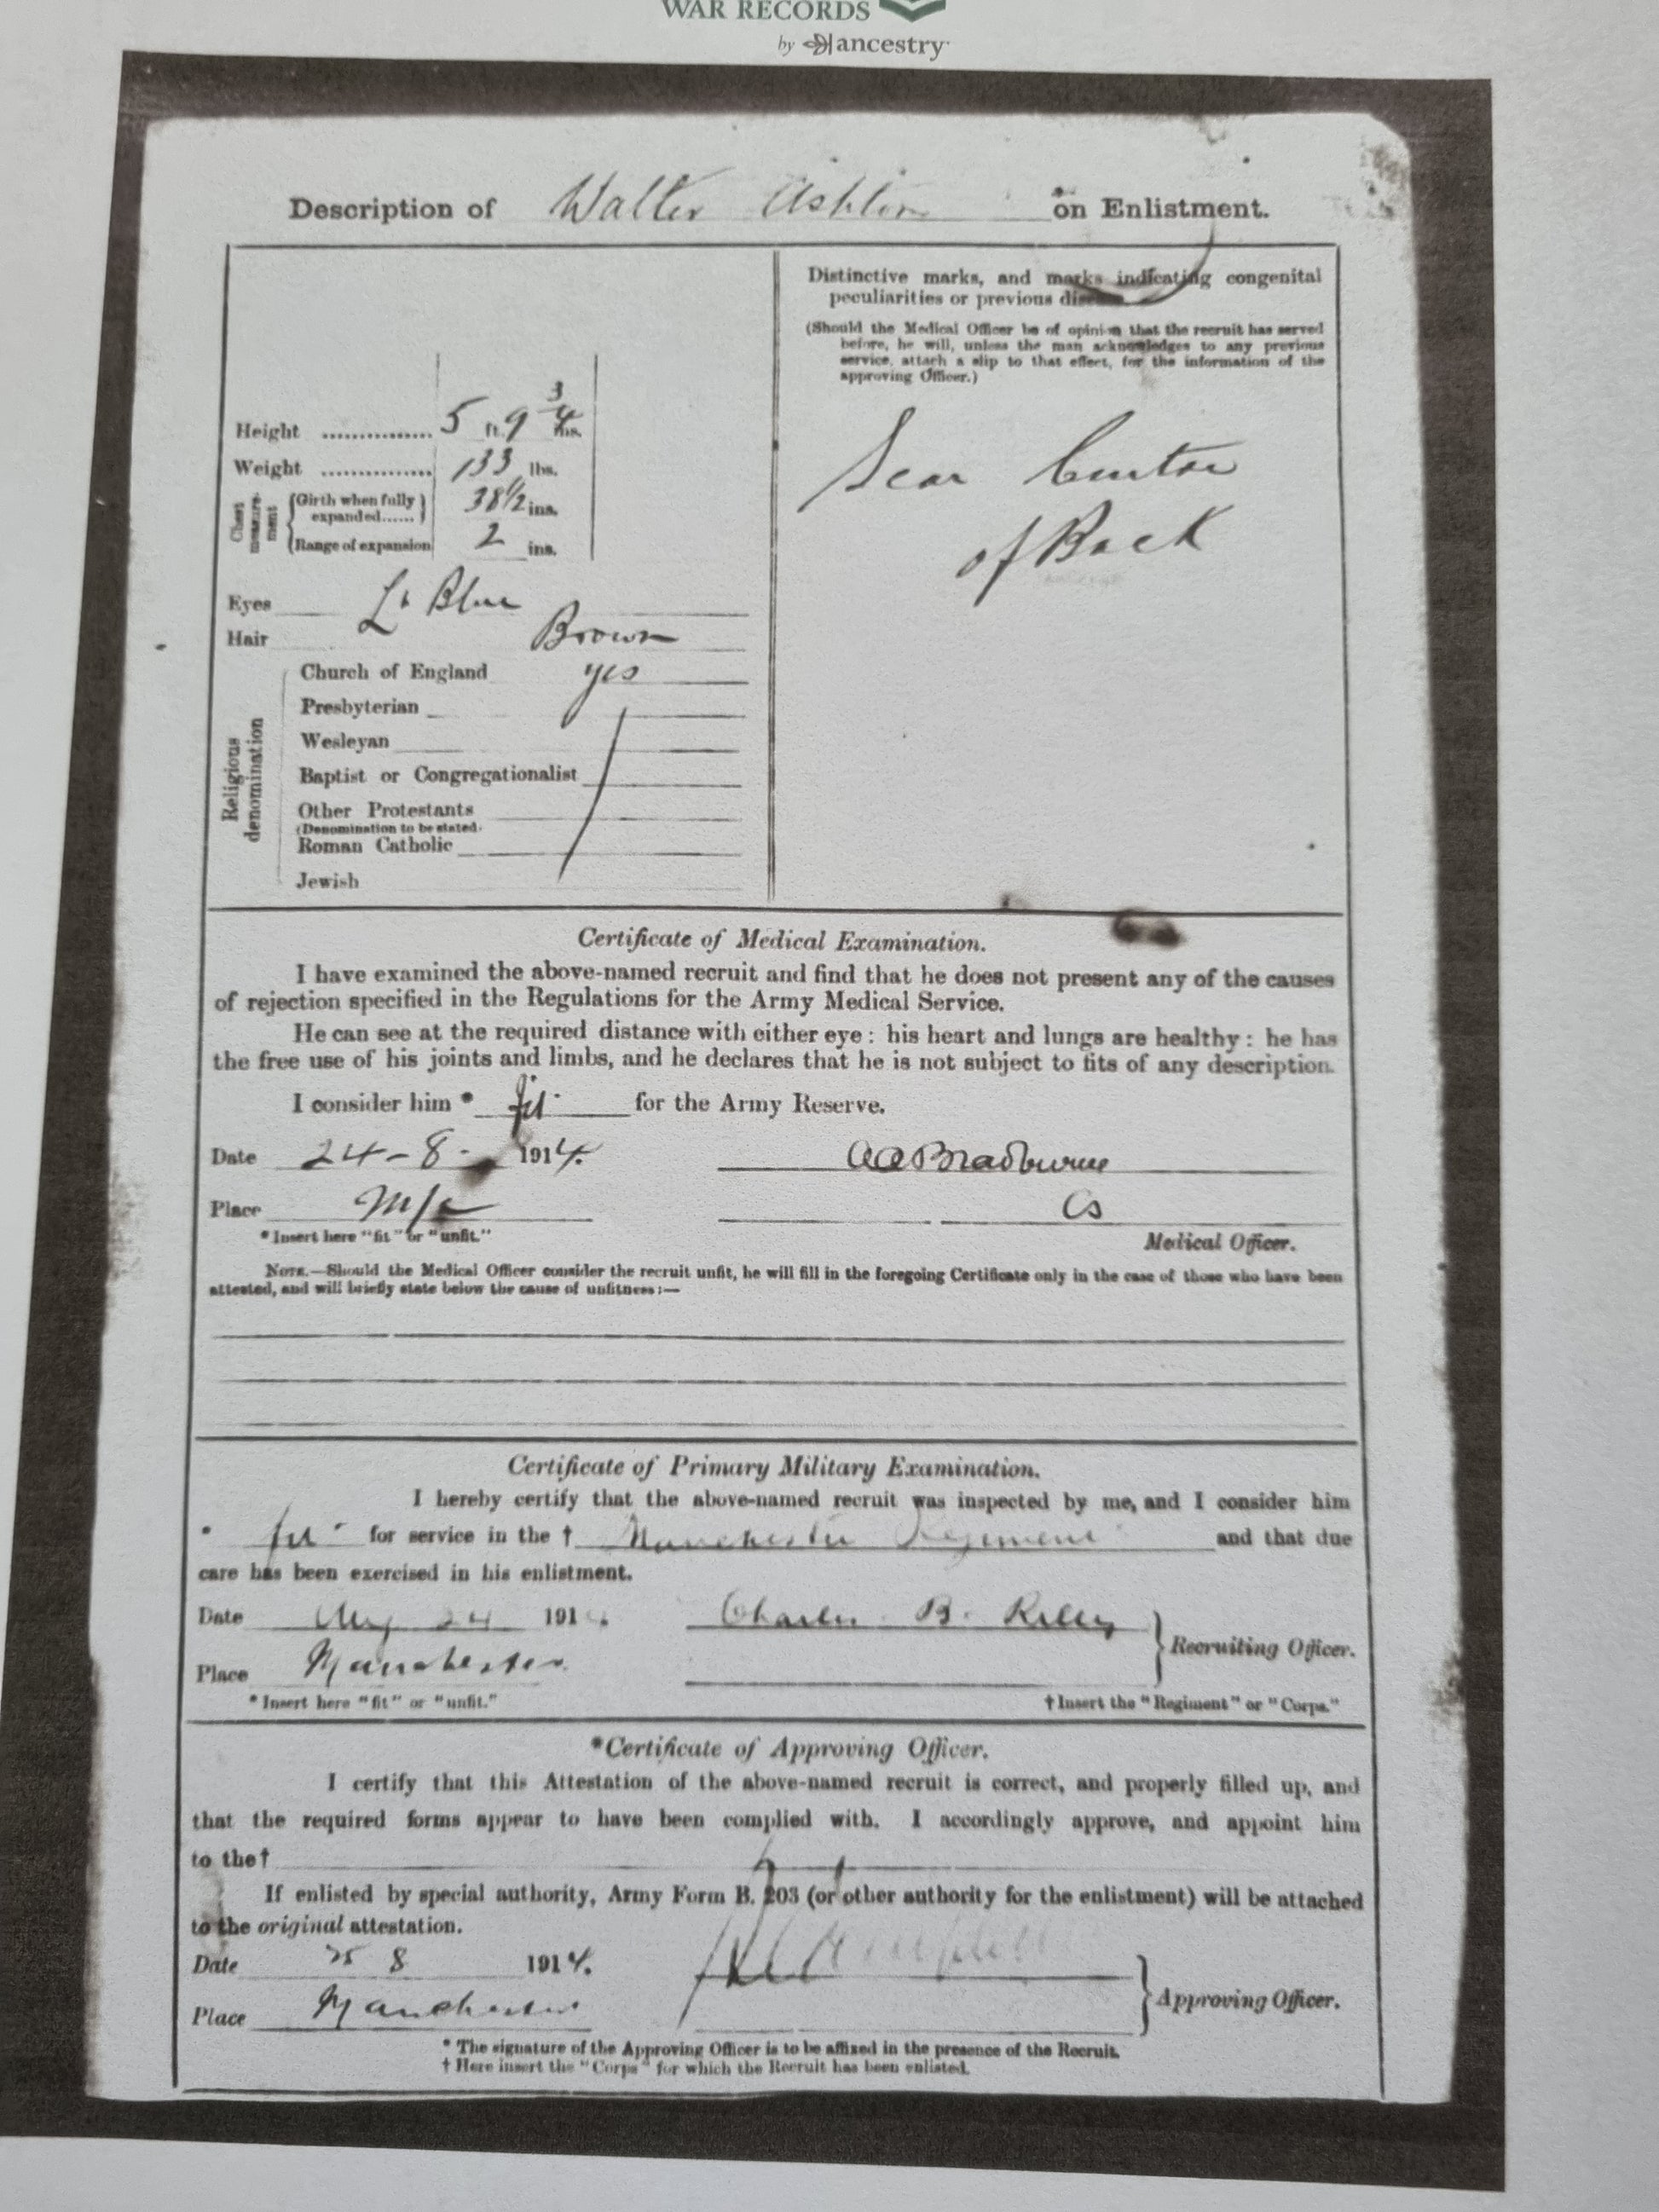 WAR RECORDS
by ancestry
Description of Walter Ashton on Enlistment.
Distinctive marks, and marks indicating congenital
peculiarities or previous disease
(Should the Medical Officer be of opinion that the recruit has served
before, he will, unless the man acknowledges to any previous
service, attach a slip to that effect, for the information of the
approving Officer.)
Height ............... 5 ft. 9 3/4 ins.
Weight ............... 133 lbs.
Chest measurement
Girth when fully expanded...... 38 1/2 ins.
Range of expansion 2 ins.
Scar Centre
of Back
Eyes Lt Blue
Hair Brown
Religious denomination
Church of England yes
Presbyterian
Wesleyan
Baptist or Congregationalist
Other Protestants
(Denomination to be stated.
Roman Catholic
Jewish
Certificate of Medical Examination.
I have examined the above-named recruit and find that he does not present any of the causes
of rejection specified in the Regulations for the Army Medical Service.
He can see at the required distance with either eye: his heart and lungs are healthy: he has
the free use of his joints and limbs, and he declares that he is not subject to fits of any description.
I consider him * fit for the Army Reserve.
Date 24-8- 1914. AABradburne
Place M/c Cs
*Insert here "fit" or "unfit."
Medical Officer.
NOTE.—Should the Medical Officer consider the recruit unfit, he will fill in the foregoing Certificate only in the case of those who have been
attested, and will briefly state below the cause of unfitness:—
Certificate of Primary Military Examination.
I hereby certify that the above-named recruit was inspected by me, and I consider him
* fit for service in the † Manchester Regiment and that due
care has been exercised in his enlistment.
Date Aug 24 191 Charles B. Kelley
Recruiting Officer.
Place Manchester
*Insert here "fit" or "unfit."
†Insert the "Regiment" or "Corps."
*Certificate of Approving Officer.
I certify that this Attestation of the above-named recruit is correct, and properly filled up, and
that the required forms appear to have been complied with. I accordingly approve, and appoint him
to the†
If enlisted by special authority, Army Form B. 203 (or other authority for the enlistment) will be attached
to the original attestation.
Date 25 8 1914. Campbell
Approving Officer.
Place Manchester
* The signature of the Approving Officer is to be affixed in the presence of the Recruit.
† Here insert the "Corps" for which the Recruit has been enlisted.